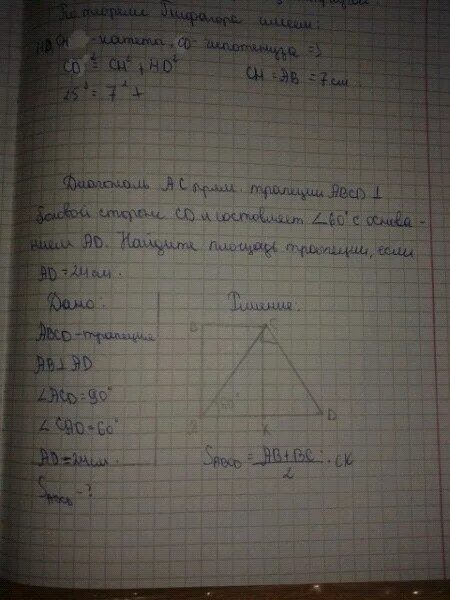 По теореме Пифагора имеем:
CH - катета, CD - гипотенуза =>
CD² = CH² + HD²
CH = AB = 7 см.
25² = 7² +
Диагональ AC прям. трапеции ABCD ⊥
боковой стороне CD и составляет ∠60° с основа-
нием AD. Найдите площадь трапеции, если
AD = 24 см.
Дано:
ABCD - трапеция
AB ⊥ AD
∠ACD = 90°
∠CAD = 60°
AD = 24 см.
S ABCD - ?
Решение.
B
C
60°
A
K
D
S ABCD = AB + BC / 2 · CK